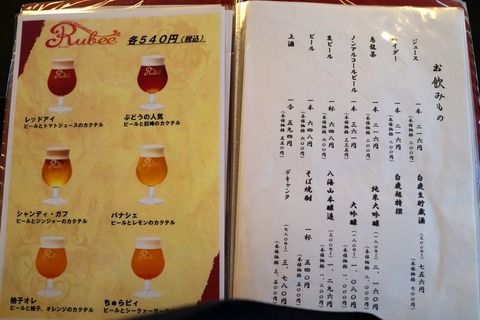 Rubee
各540円(税込)
レッドアイ
ビールとトマトジュースのカクテル
ぶどうの人気
ビールと巨峰のカクテル
シャンディ・ガフ
ビールとジンジャーのカクテル
パナシェ
ビールとレモンのカクテル
柚子オレ
ビールと柚子、オレンジのカクテル
ちゅらビィ
ビールとシークヮーサーの
お飲みもの
ジュース 一本 二一六円
(本体価格 二〇〇円)
サイダー 一本 二一六円
(本体価格 二〇〇円)
烏龍茶 一本 二一六円
(本体価格 二〇〇円)
ノンアルコールビール 一本
生ビール 一杯 六四八円
(本体価格 六〇〇円)
ビール 一本 六四八円
(本体価格 六〇〇円)
上酒 一合 五九四円
(本体価格 五五〇円)
白鹿生貯蔵酒
七五六円
(本体価格 七〇〇円)
白鹿超特撰
純米大吟醸
大吟醸
一、〇八〇円
八海山本醸造
一、二九六円
そば焼酎 一杯 五四〇円
デキャンタ
三、七八〇円